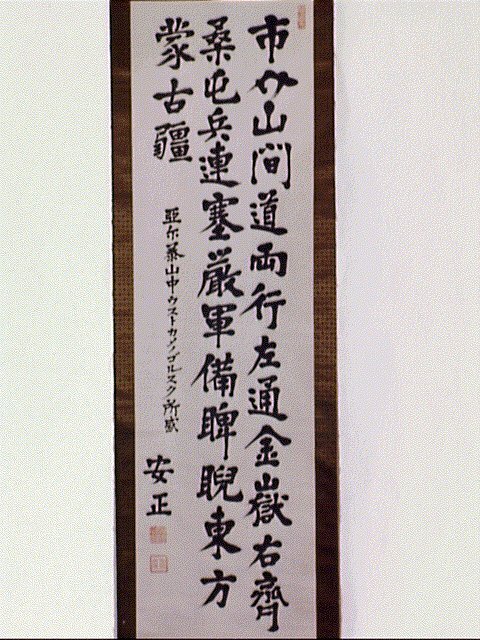 市山間道両行左通金嶽右齊
桑屯兵連塞厳軍備睥睨東方
蒙古疆
亜尓泰山中ウストカメノゴルスク所感
安正